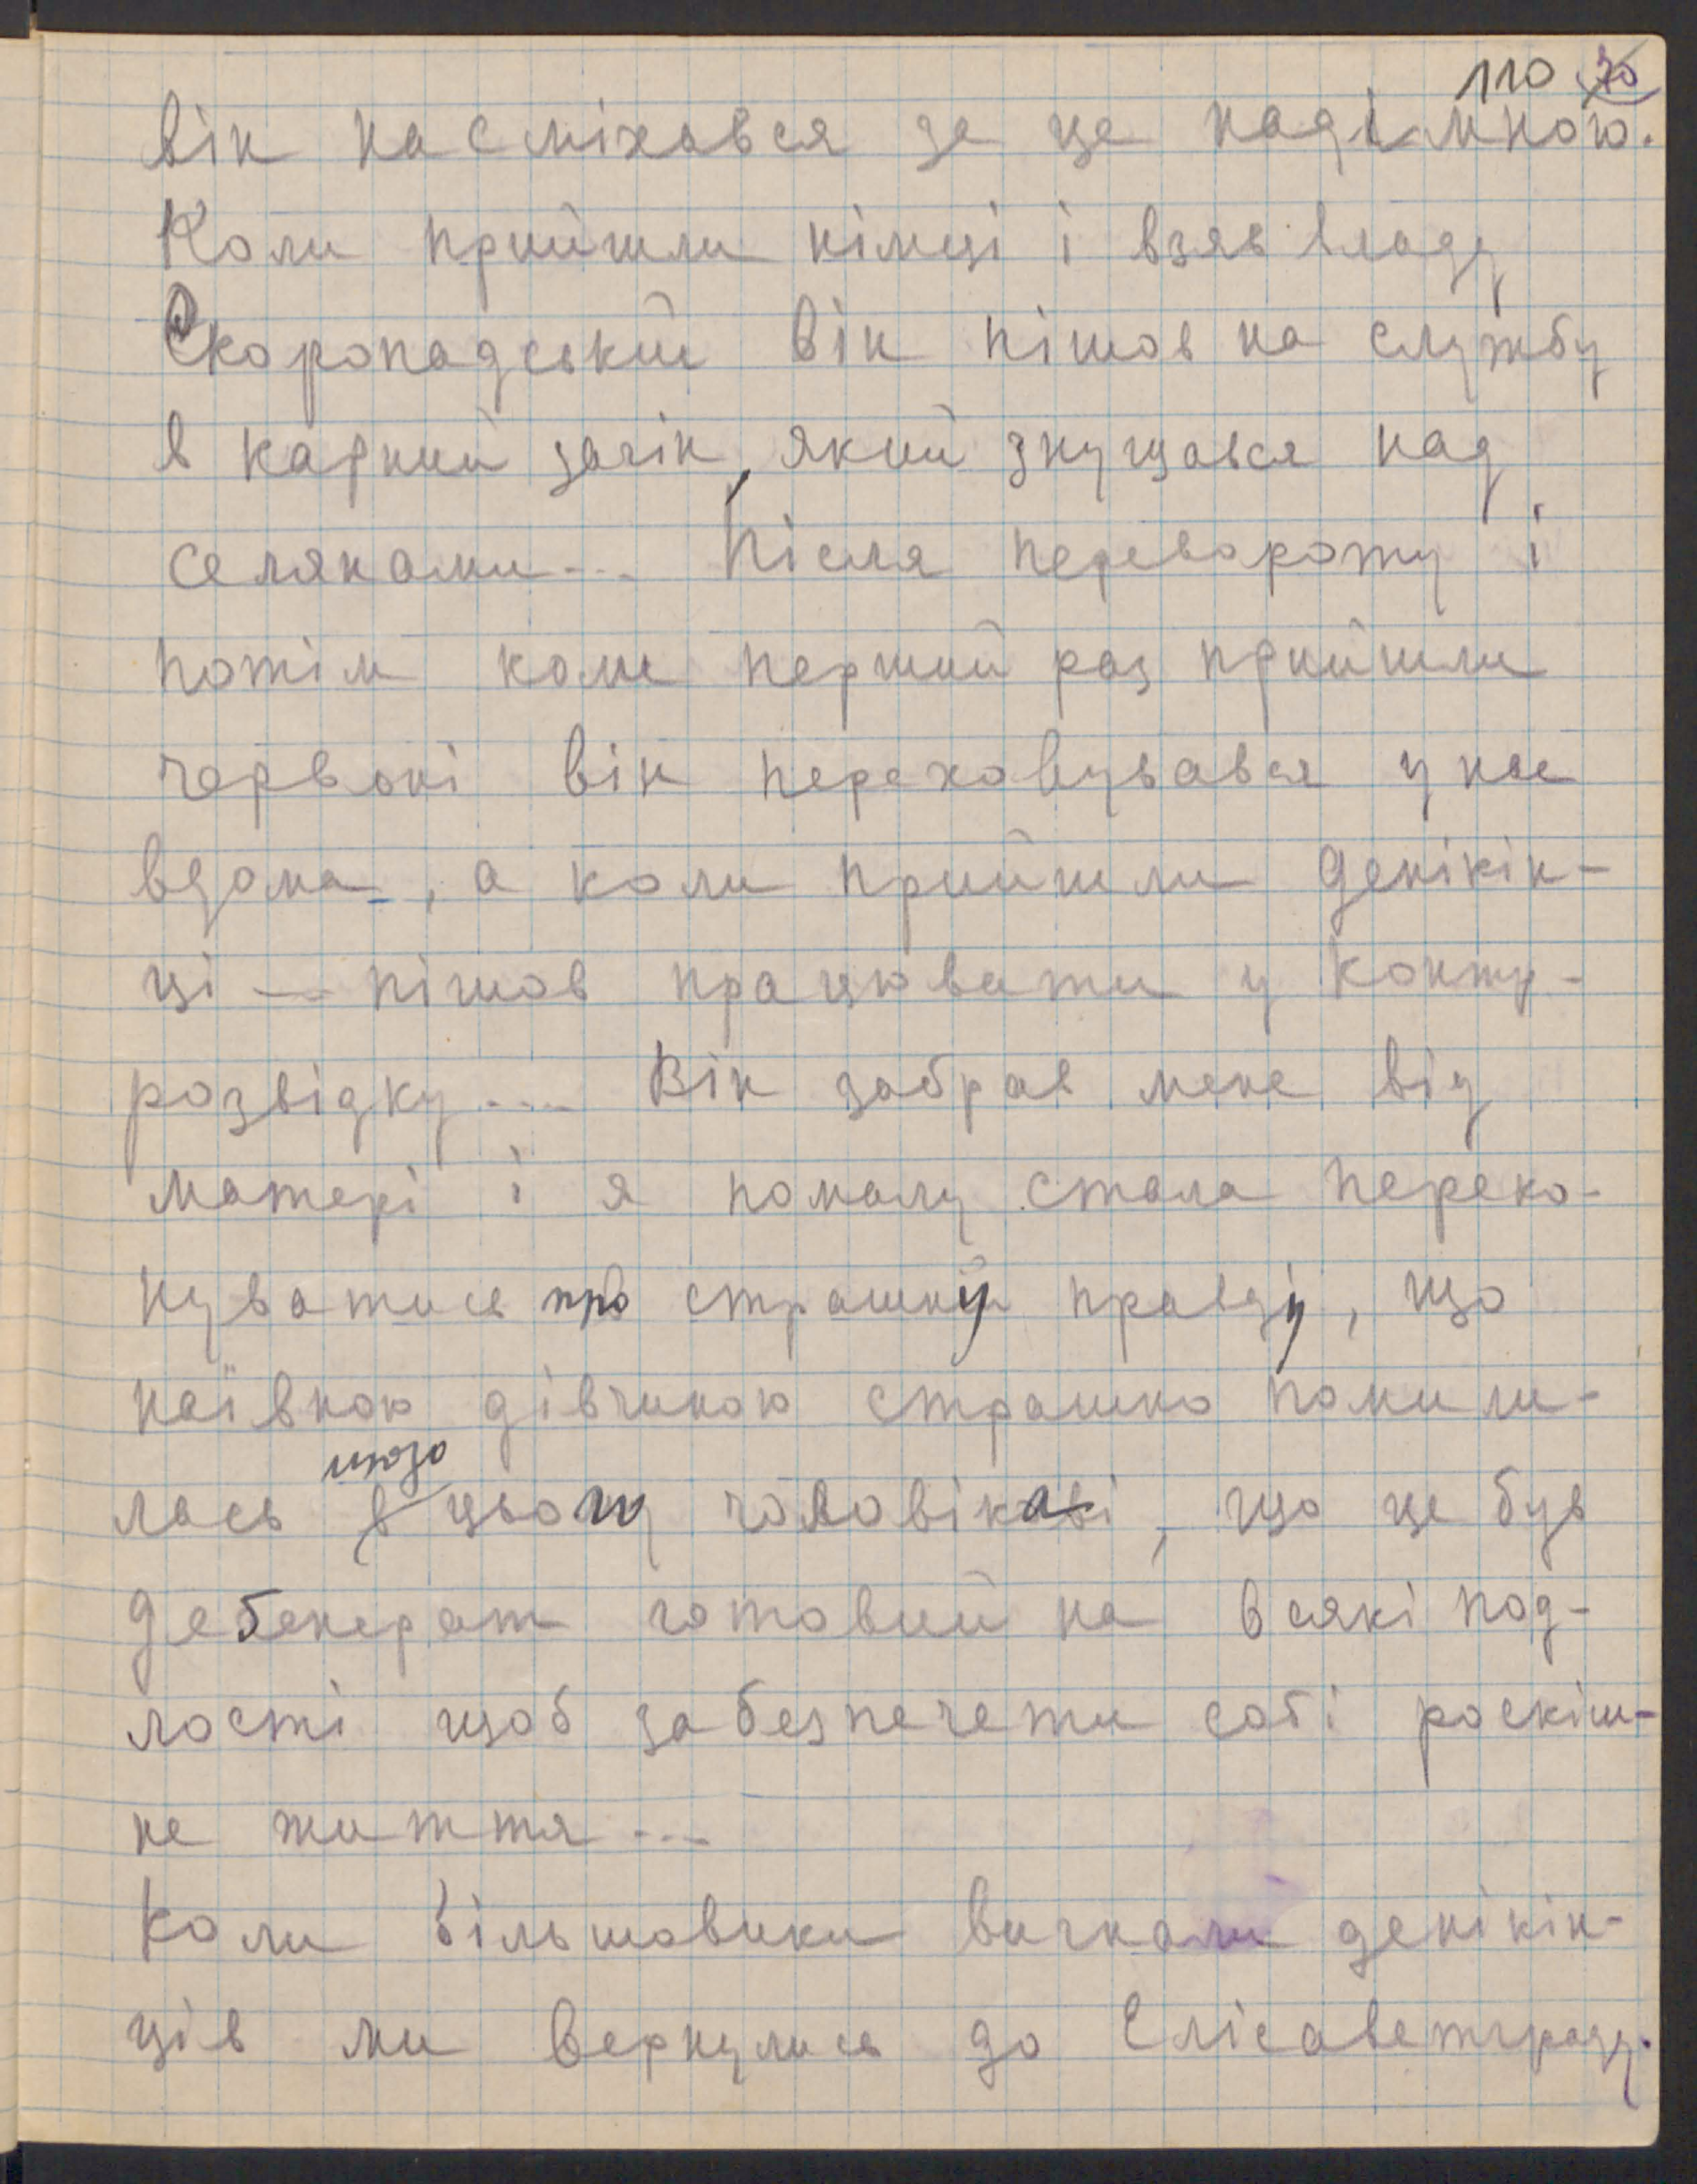 110 70
він насміхався за це наді мною.
Коли прийшли німці і взяв владу
Скоропадський він пішов на службу
в карний загін, який знущався над
селянами... Після перевороту і
потім коли перший раз прийшли
червоні він переховувався у нас
вдома, а коли прийшли денікін-
ці — пішов працювати у контр-
розвідку... Він забрав мене від
матері і я помалу стала переко-
нуватись про страшну правду, що
наївною дівчиною страшно помили-
щодо
лась в цьому чоловікові, що це був
дебенерат готовий на всякі под-
лості щоб забезпечети собі роскіш-
не життя...
Коли більшовики вигнали денікін-
ців ми вернулись до Єлісаветграду.